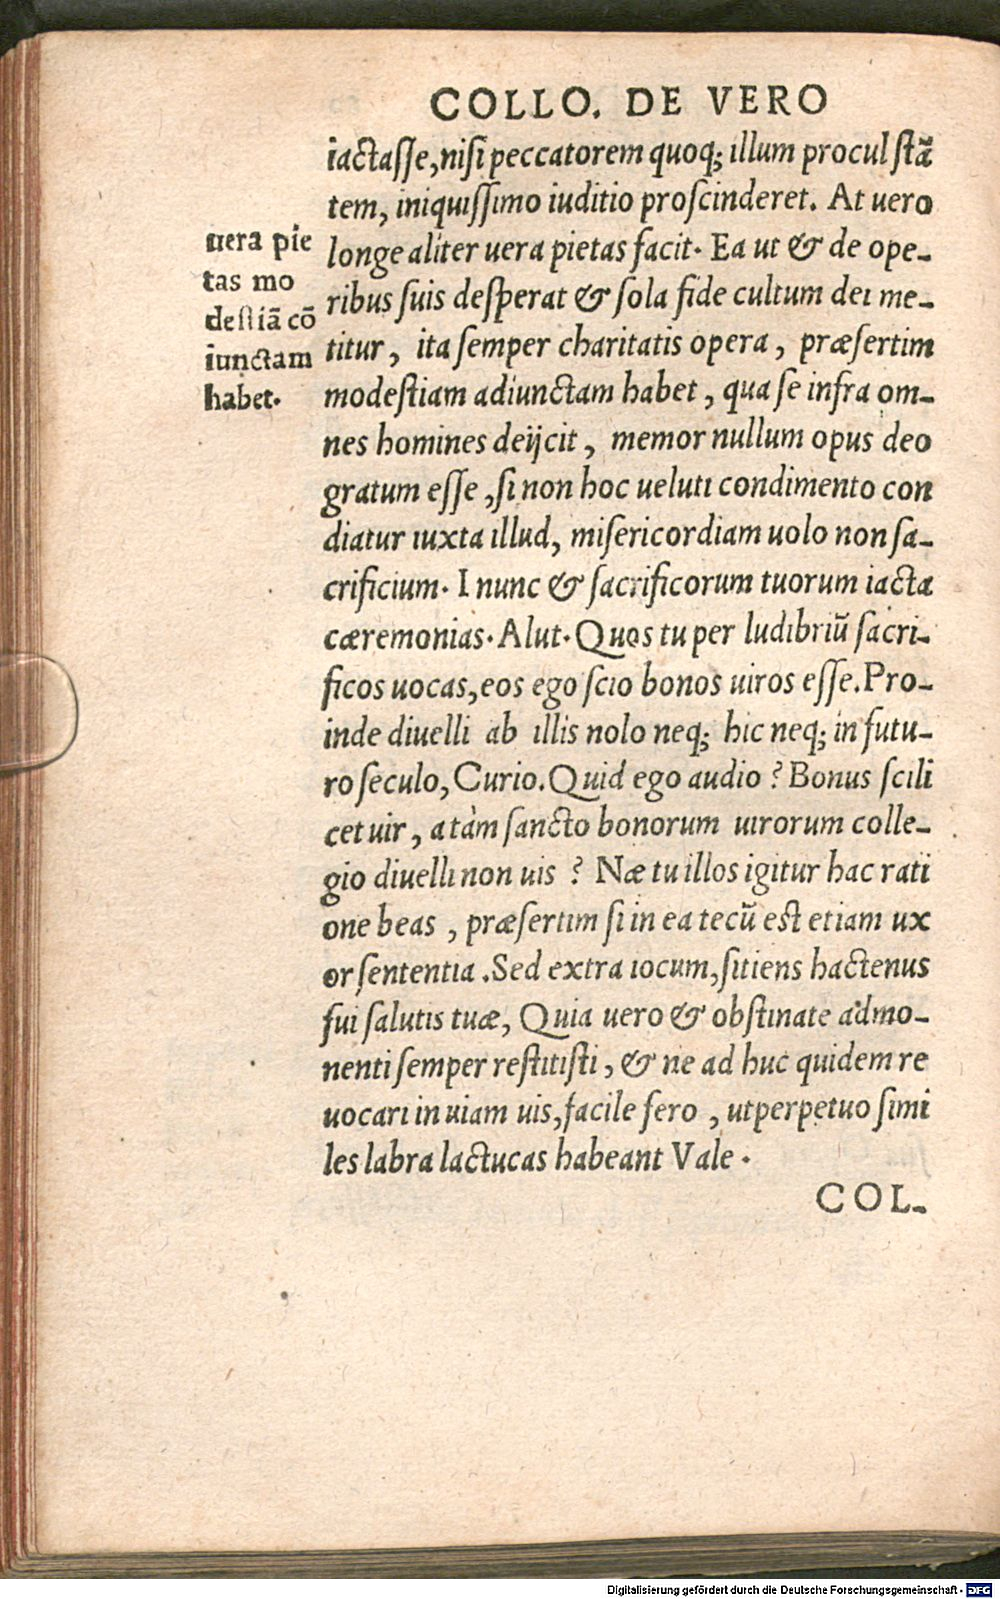 COLLO. DE VERO
iactasse, nisi peccatorem quoq; illum procul stã
tem, iniquissimo iuditio proscinderet. At uero
longe aliter uera pietas facit. Ea ut & de ope-
ribus suis desperat & sola fide cultum dei me-
titur, ita semper charitatis opera, præsertim
modestiam adiunctam habet, qua se infra om-
nes homines deijcit, memor nullum opus deo
gratum esse, si non hoc ueluti condimento con
diatur iuxta illud, misericordiam uolo non sa-
crificium. I nunc & sacrificorum tuorum iacta
cæremonias. Alut. Quos tu per ludibriũ sacri-
ficos uocas, eos ego scio bonos uiros esse. Pro-
inde diuelli ab illis nolo neq; hic neq; in futu-
ro seculo, Curio. Quid ego audio? Bonus scili
cet uir, a tàm sancto bonorum uirorum colle-
gio diuelli non uis? Næ tu illos igitur hac rati
one beas, præsertim si in ea tecũ est etiam ux
or sententia. Sed extra iocum, sitiens hactenus
fui salutis tuæ, Quia uero & obstinate admo-
nenti semper restitisti, & ne ad huc quidem re
uocari in uiam uis, facile fero, ut perpetuo simi
les labra lactucas habeant Vale.
COL-
uera pie
tas mo
destiã cõ
iunctam
habet.
Digitalisierung gefördert durch die Deutsche Forschungsgemeinschaft - DFG